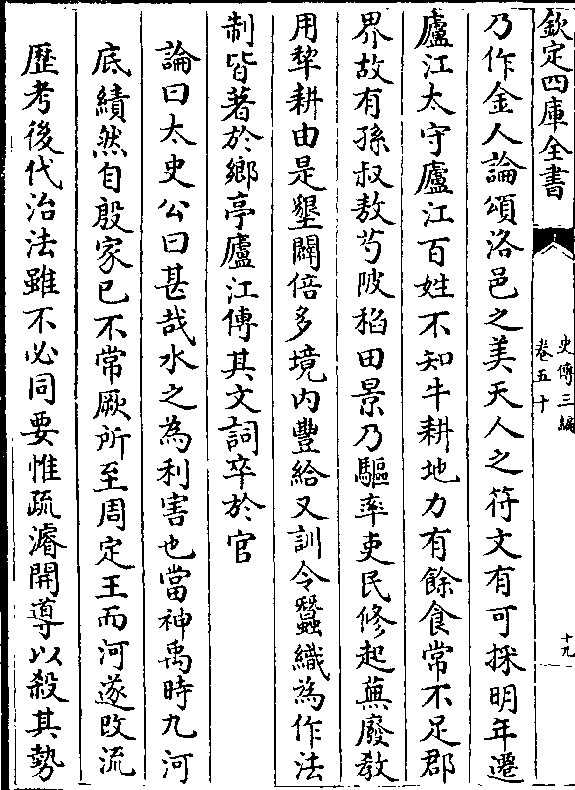 欽定四庫全書
史傳三編
卷五十
十九
乃作金人論頌洛邑之美天人之符文有可採明年遷
廬江太守廬江百姓不知牛耕地力有餘食常不足郡
界故有孫叔敖芍陂稻田景乃驅率吏民修起蕪廢教
用犂耕由是墾闢倍多境内豐給又訓令蠶織為作法
制皆著於鄉亭廬江傳其文詞卒於官
論曰太史公曰甚哉水之為利害也當神禹時九河
底績然自殷家已不常厥所至周定王而河遂改流
歷考後代治法雖不必同要惟疏濬開導以殺其勢